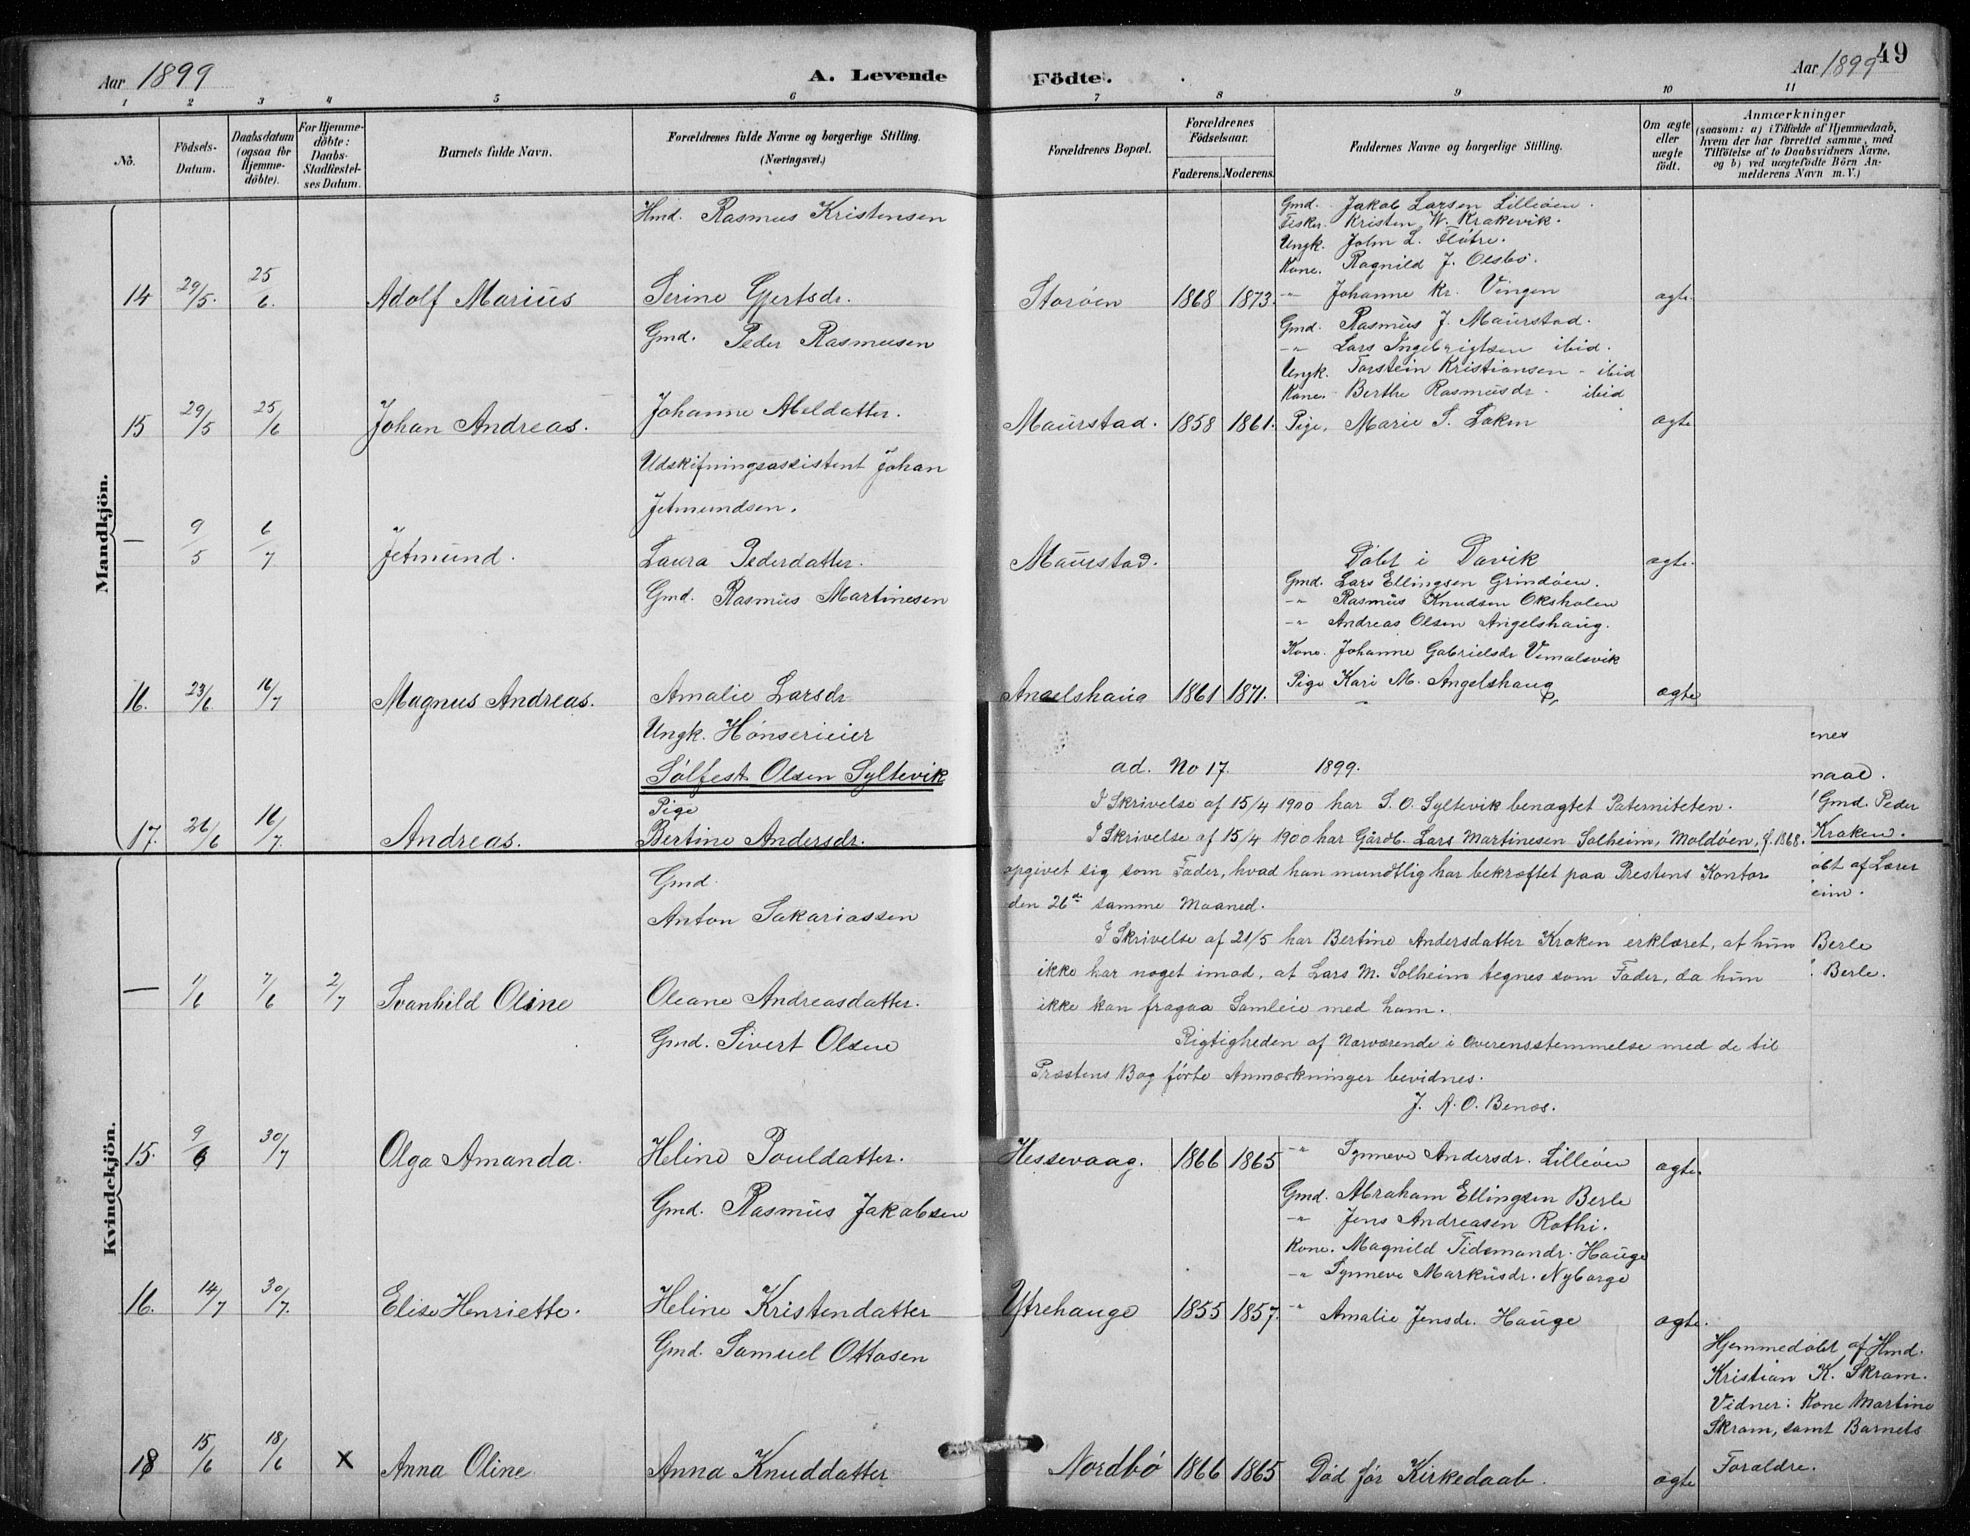 Aar 1899 A. Levende Födte. Aar 1899 49
1 2 3 4 5 6 7 8 9 10 11
No.
Födsels-Datum.
Daabsdatum (ogsaa for Hjemme-döbte).
For Hjemme-döbte: Daabs-Stadfæstel-ses Datum.
Barnets fulde Navn.
Forældrenes fulde Navne og borgerlige Stilling. (Næringsvei.)
Forældrenes Bopæl.
Forældrenes Födselsaar.
Faderens. Moderens.
Faddernes Navne og borgerlige Stilling.
Om ægte eller uægte födt.
Anmærkninger
(saasom: a) i Tilfælde af Hjemmedaab,
hvem der har forrettet samme, med
Tilföielse af to Daabsvidners Navne,
og b) ved uægtefödte Börn An-
melderens Navn m. V.)
Mandkjön.
Hmd. Rasmus Kristensen
Gmd. Jakob Larsen Lilleöen.
Fisker. Kristen W. Krakevik.
Ungk. John L. Flötre.
Kone. Ragnild J. Olsbö.
14 29/5. 25/6. Adolf Marius Serine Gjertsdr. Storöen 1868 1873. -"- Johanne Kr. Vingen ægte.
Gmd. Peder Rasmusen
Gmd. Rasmus J. Maurstad.
-"- Lars Ingebrigtsen ibid.
Ungk. Torstein Kristiansen - ibid
Kone. Berthe Rasmusdr. ibid
15 29/5 25/6 Johan Andreas. Johanne Abeldatter. Maurstad. 1858 1861. Pige, Marie S. Loken ægte
Udskifningsassistent Johan
Jetmundsen.
— 9/5 6/7 Jetmund. Laura Pederdatter. Maurstad. Döbt i Davik ægte.
Gmd. Rasmus Martinesen
Gmd. Lars Ellingsen Grindöen.
-"- Rasmus Knudsen Oksholen
-"- Andreas Olsen Angelshaug.
Kone. Johanne Gabrielsdr Vemelsvik
16. 23/6 16/7 Magnus Andreas. Amalie Larsdr. Angelshaug 1861 1871. Pige Kari M. Angelshaug ægte
Ungk. Hönserieier
Sölfest Olsen Syltevik
Pige
17. 26/6 16/7. Andreas. Bertine Andersdr.
ad. No 17. 1899.
I Skrivelse af 15/4 1900 har S. O. Syltevik benægtet Paterniteten.
I Skrivelse af 15/4 1900 har Gårdb. Lars Martinesen Solheim, Moldöen, f. 1868.
opgivet sig som Fader, hvad han mundtlig har bekræftet paa Prestens Kontor
den 26de samme Maaned.
I Skrivelse af 21/5 har Bertine Andersdatter Kroken erklæret, at hun
ikke har noget imod, at Lars M. Solheim tegnes som Fader, da hun
ikke kan fragaa Samleie med ham.
Rigtigheden af Nærværende i Overensstemmelse med de til
Præstens Bog förte Anmærkninger bevidnes.
J. A. O. Benös.
enes
naal.
Gmd. Peder
Kroken.
öbt af Lærer
eim.
Berle
Berle.
Kvindekjön.
Gmd.
Anton Sakariassen
— 1/6 7/6 2/7 Svanhild Oline Oleane Andreasdatter.
Gmd. Sivert Olsen
15. 9/6 30/7 Olga Amanda. Heline Pouldatter. Hessevaag. 1866 1865 -"- Synneve Andersdr. Lilleöen ægte.
Gmd. Rasmus Jakobsen
Gmd. Abraham Ellingsen Berle
-"- Jens Andreasen Rothi.
Kone. Magnild Tidemandr. Hauge
-"- Synneve Markusdr. Nyborge
16. 14/7 30/7. Elise Henriette. Heline Kristendatter Ytrehauge 1855 1857. -"- Amalie Jensdr. Hauge ægte.
Gmd. Samuel Ottosen
Hjemmedöbt af Hmd.
Kristian K. Skram.
Vidner: Kone Martine
Skram, samt Barnets
18 15/6 18/6 x Anna Oline Anna Knuddatter Nordbö 1866 1865 Död för Kirkedaab. ægte Foraldre.